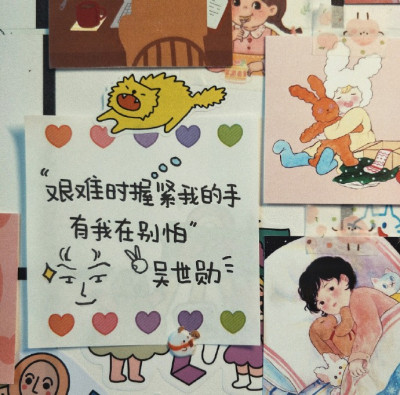 "艰难时握紧我的手
有我在别怕"
吴世勋